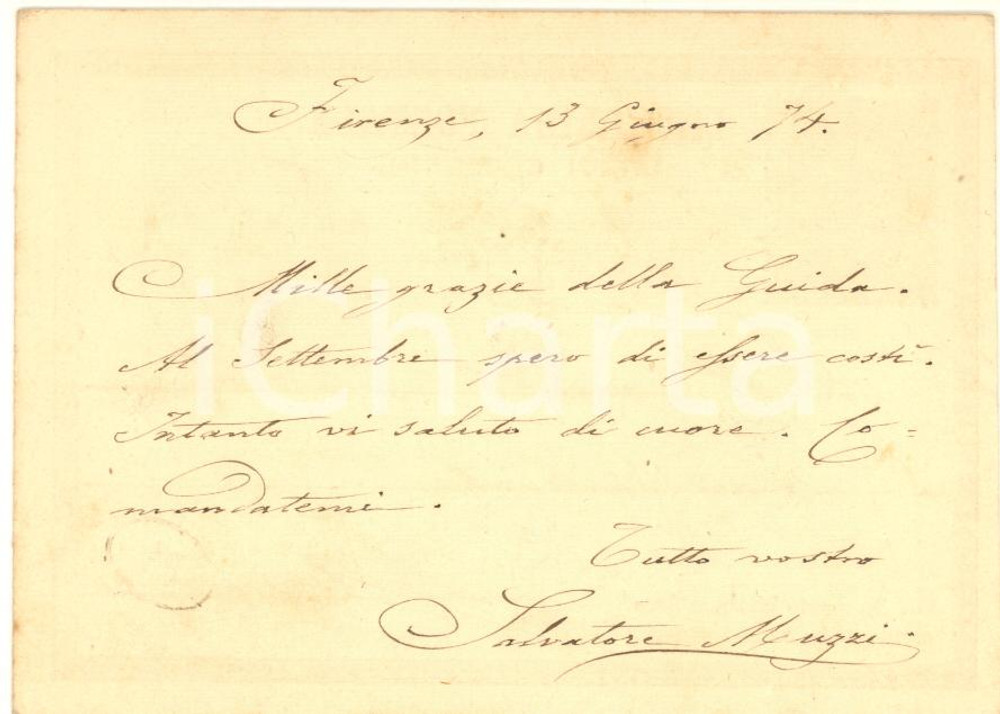 Firenze, 13 Giugno 74.
Mille grazie della Guida.
Al Settembre spero di essere costì.
Intanto vi saluto di cuore. Co=
mandatemi.
Tutto vostro
Salvatore Muzzi
iCharta